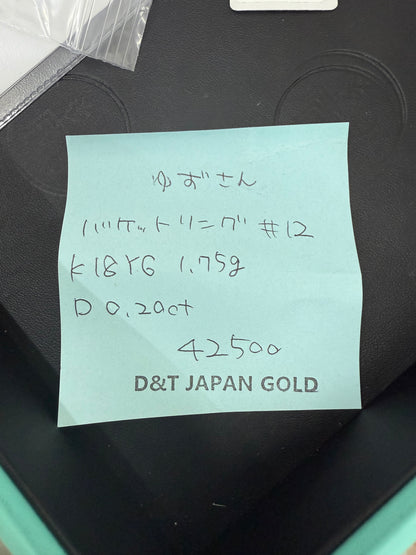 ゆずさん
バケットリング #12
K18YG 1.75g
D 0.20ct
42500
D&T JAPAN GOLD